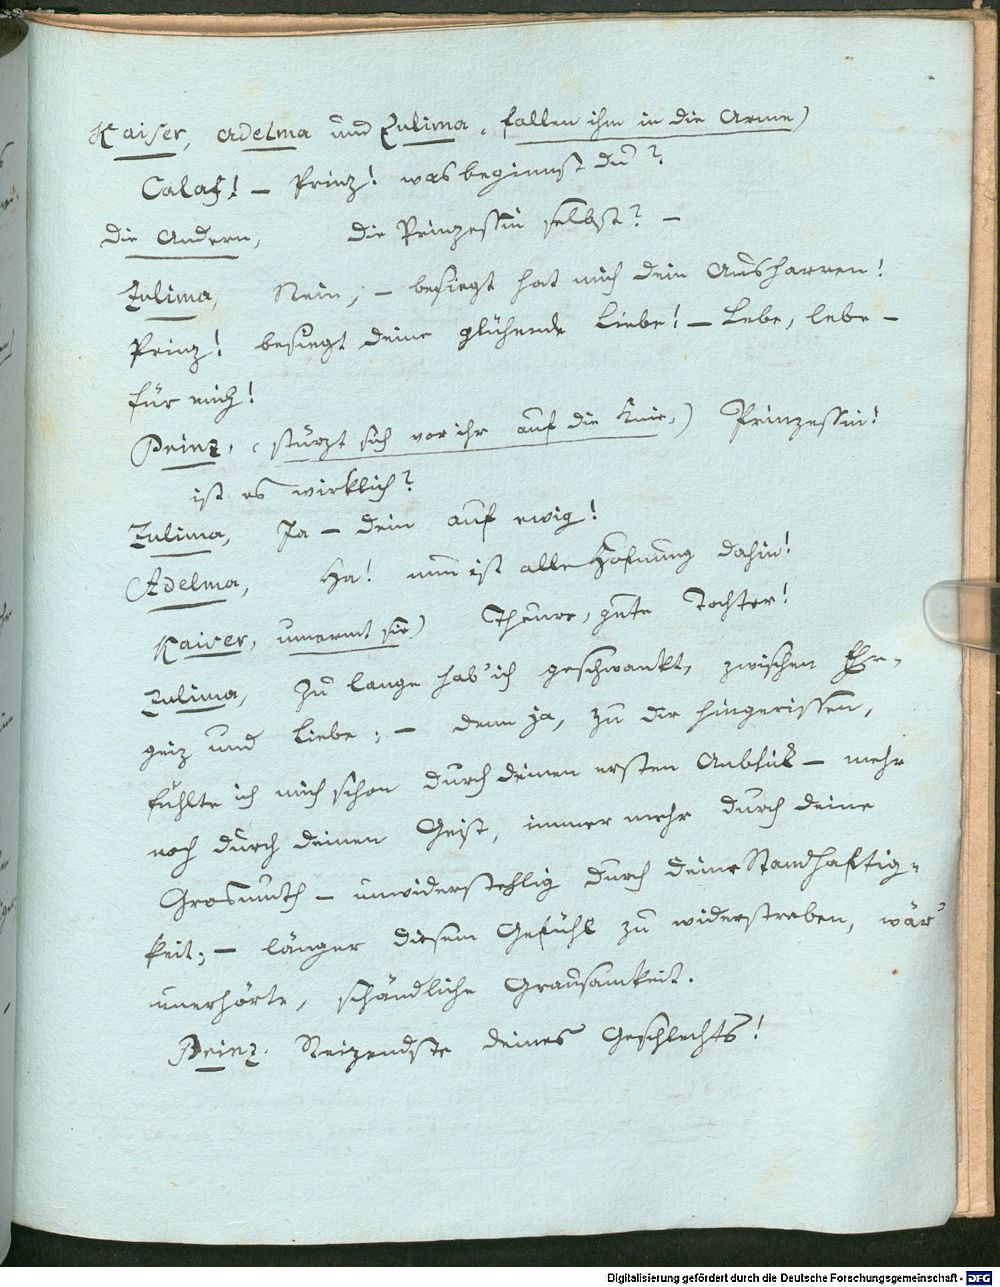 Kaiser, Adelma und Zulima, fallen ihm in die Arme)
Calaf! – Prinz! was beginnst du?
die Andern, die Prinzessin selbst? –
Zulima, Nein, – besiegt hat mich dein Ausharren!
Prinz! besiegt deine glühende Liebe! – Lebe, lebe –
für mich!
Prinz, (stürzt sich vor ihr auf die Knie,) Prinzessin!
ist es wirklich?
Zulima, Ja – dein auf ewig!
Adelma, Ha! nun ist alle Hofnung dahin!
Kaiser, umarmt sie) Theure, gute Tochter!
Zulima, Zu lange hab' ich geschwankt, zwischen Ehr-
geiz und Liebe; – denn ja, zu dir hingerissen,
fühlte ich mich schon durch deinen ersten Anblick – mehr
noch durch deinen Geist, immer mehr durch deine
Grosmuth – unwiderstehlig durch deine Standhaftig-
keit; – länger diesem Gefühl zu widerstreben, wär'
unerhörte, schändliche Grausamkeit.
Prinz. Reizendste deines Geschlechts!
Digitalisierung gefördert durch die Deutsche Forschungsgemeinschaft - DFG